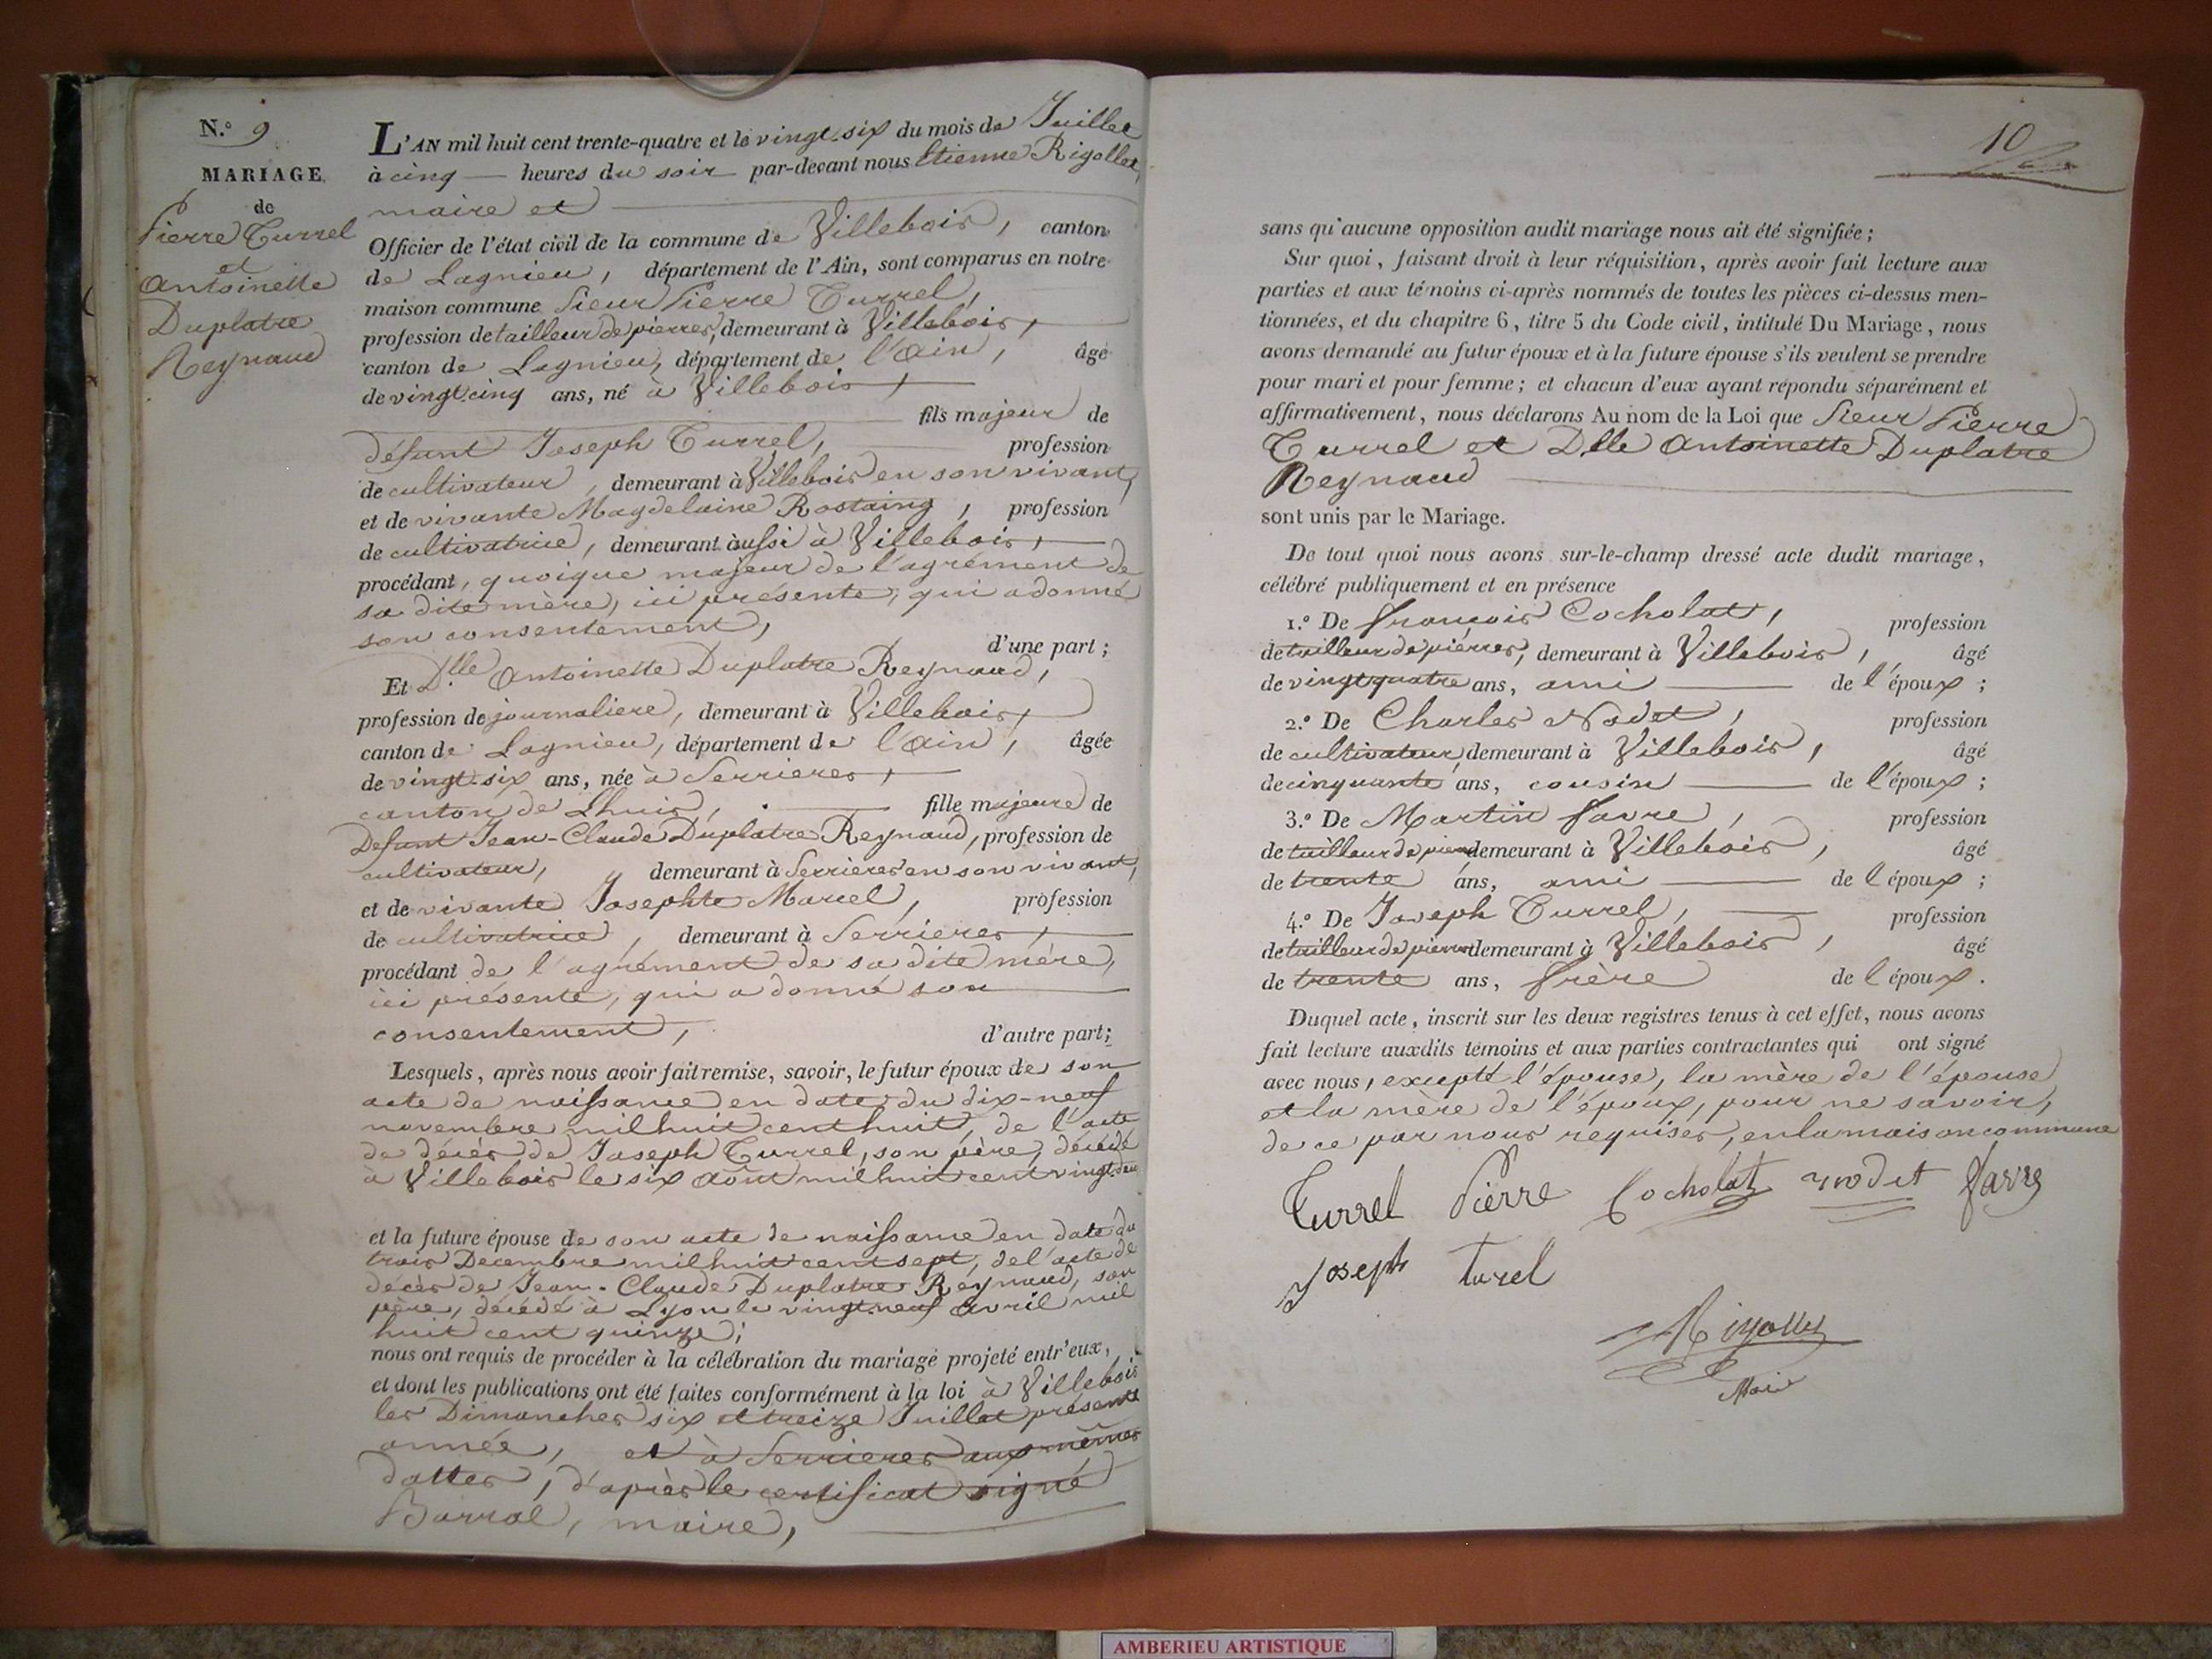 N.º 9
MARIAGE
de
Pierre Turrel
et
Antoinette
Duplatre
Reynaud
L'AN mil huit cent trente-quatre et le vingt-six du mois de Juillet
à cinq heures du soir par-devant nous Etienne Rigollet,
maire et
Officier de l'état civil de la commune de Villebois, canton
de Lagnieu, département de l'Ain, sont comparus en notre
maison commune Sieur Pierre Turrel,
profession de tailleur de pierres, demeurant à Villebois,
canton de Lagnieu, département de l'Ain, âgé
de vingt cinq ans, né à Villebois,
fils majeur de
défunt Joseph Turrel, profession
de cultivateur, demeurant à Villebois en son vivant,
et de vivante Magdelaine Rostaing, profession
de cultivatrice, demeurant aussi à Villebois,
procédant, quoique majeur de l'agrément de
sa dite mère, ici présente, qui a donné
son consentement,
d'une part;
Et D.lle Antoinette Duplatre Reynaud,
profession de journaliere, demeurant à Villebois,
canton de Lagnieu, département de l'Ain, âgée
de vingt-six ans, née à Serrieres,
canton de Lhuis, fille majeure de
Defunt Jean-Claude Duplatre Reynaud, profession de
cultivateur, demeurant à Serrieres en son vivant,
et de vivante Josephte Marcel, profession
de cultivatrice, demeurant à Serrieres,
procédant de l'agrément de sa dite mère,
ici présente, qui a donné son
consentement, d'autre part;
Lesquels, après nous avoir fait remise, savoir, le futur époux de son
acte de naissance en date du dix-neuf
novembre mil huit cent huit, de l'acte
de décès de Joseph Turrel, son père, décédé
à Villebois le six août mil huit cent vingt-deux
et la future épouse de son acte de naissance en date du
trois Decembre mil huit cent sept, de l'acte de
décès de Jean-Claude Duplatre Reynaud, son
père, décédé à Lyon le vingt-neuf avril mil
huit cent quinze;
nous ont requis de procéder à la célébration du mariage projeté entr'eux,
et dont les publications ont été faites conformément à la loi à Villebois
les Dimanches six et treize Juillet présente
année, et à Serrieres aux mêmes
dattes, d'après le certificat signé
Barral, maire,
10
sans qu'aucune opposition audit mariage nous ait été signifiée;
Sur quoi, faisant droit à leur réquisition, après avoir fait lecture aux
parties et aux témoins ci-après nommés de toutes les pièces ci-dessus men-
tionnées, et du chapitre 6, titre 5 du Code civil, intitulé Du Mariage, nous
avons demandé au futur époux et à la future épouse s'ils veulent se prendre
pour mari et pour femme; et chacun d'eux ayant répondu séparément et
affirmativement, nous déclarons Au nom de la Loi que Sieur Pierre
Turrel et Dlle Antoinette Duplatre
Reynaud
sont unis par le Mariage.
De tout quoi nous avons sur-le-champ dressé acte dudit mariage,
célébré publiquement et en présence
1.º De François Cocholat, profession
de tailleur de pierres, demeurant à Villebois, âgé
de vingt quatre ans, ami de l'époux;
2.º De Charles Nodet, profession
de cultivateur, demeurant à Villebois, âgé
de cinquante ans, cousin de l'époux;
3.º De Martin Favre, profession
de tailleur de pierres demeurant à Villebois, âgé
de trente ans, ami de l'époux;
4.º De Joseph Turrel, profession
de tailleur de pierres demeurant à Villebois, âgé
de trente ans, frère de l'époux.
Duquel acte, inscrit sur les deux registres tenus à cet effet, nous avons
fait lecture auxdits témoins et aux parties contractantes qui ont signé
avec nous, excepté l'épouse, la mère de l'épouse
et la mère de l'époux, pour ne savoir,
de ce par nous requises, en la maison commune
Turrel Pierre Cocholat nodet favre
Joseph turel
Rigollet
Maire
AMBERIEU ARTISTIQUE